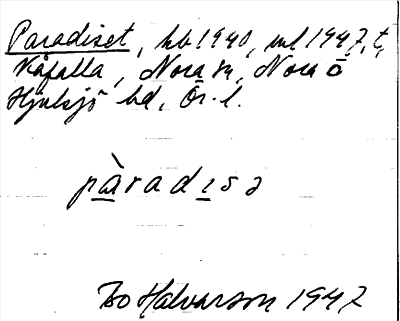 Paradiset, hb 1940, ml 1947, t,
Kåfalla, Nora sn, Nora o
Hjulsjö bd, Ör. l.
pàradısə
Bo Halvarson 1947